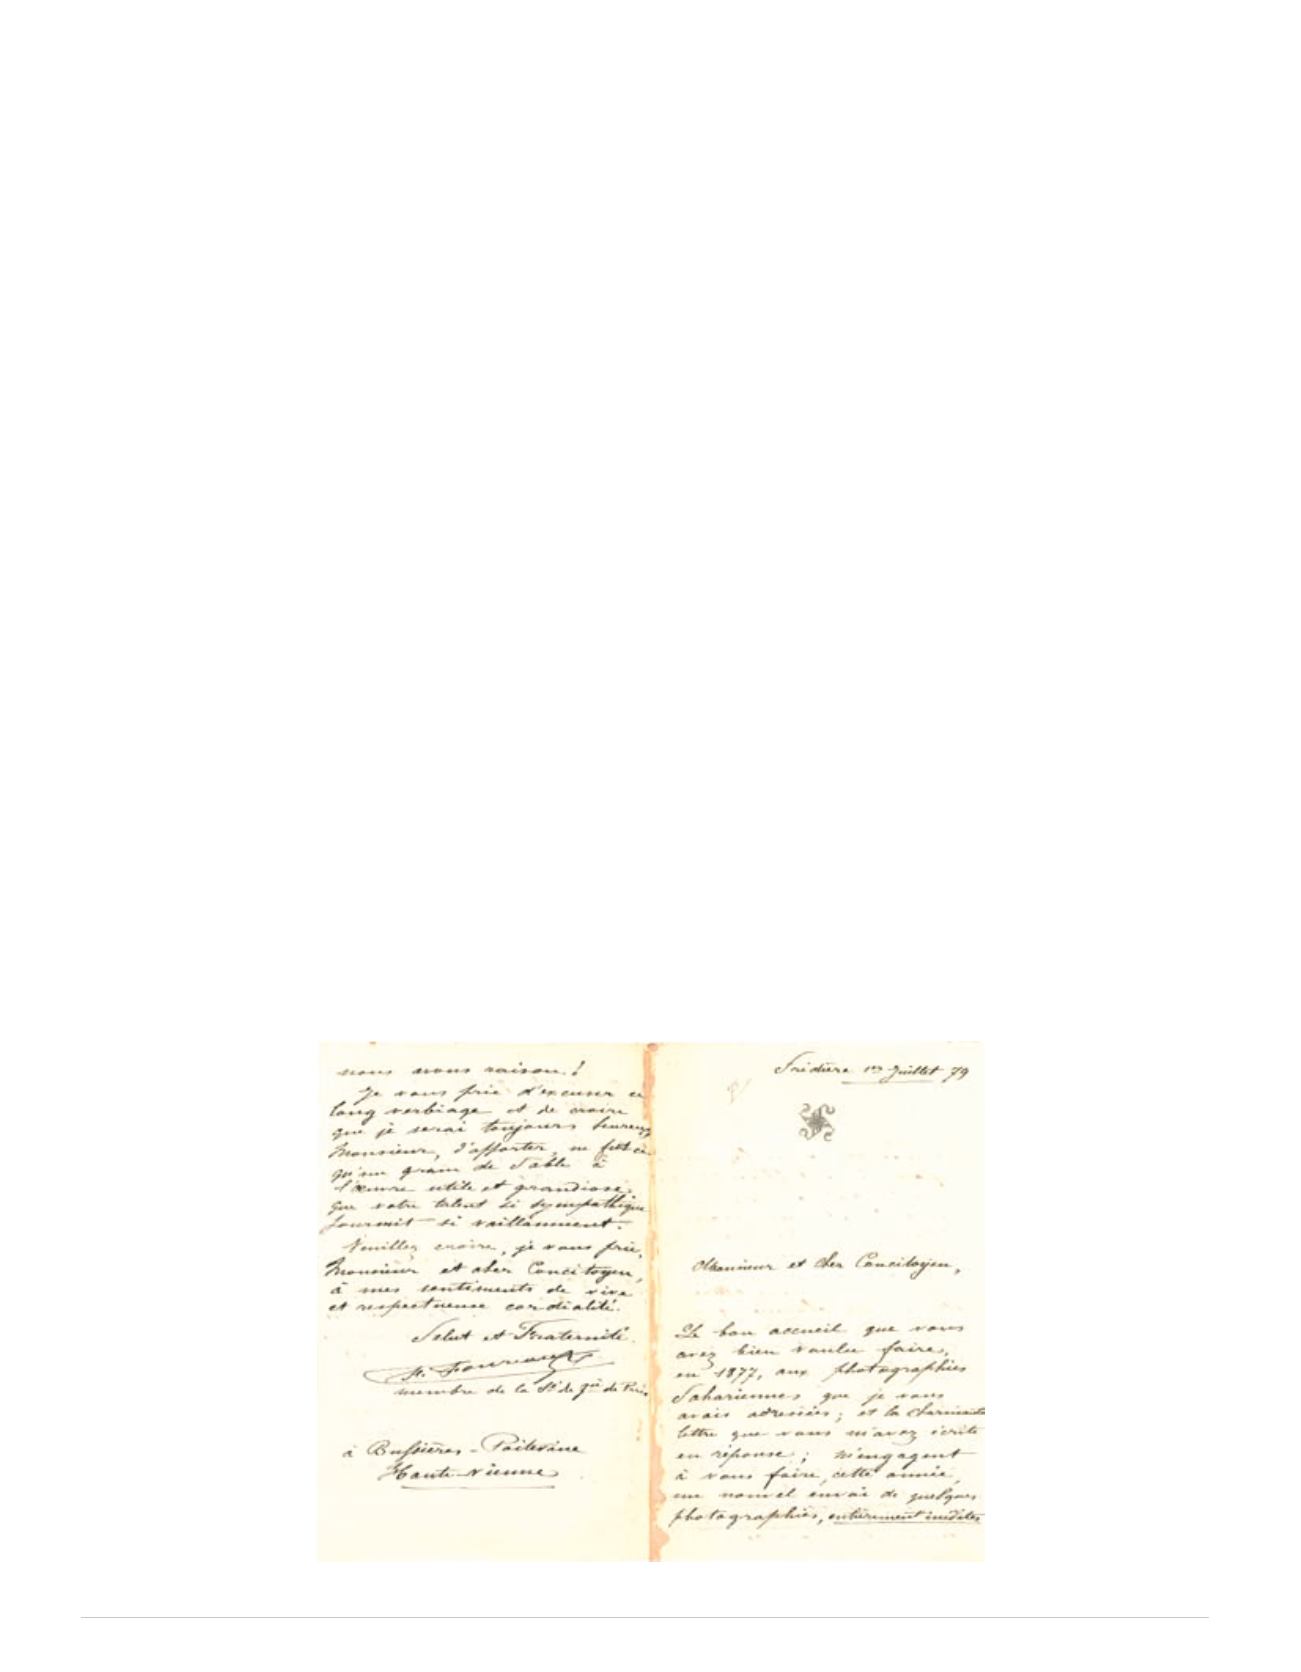 nous avons raison !
Je vous prie d'excuser ce
long verbiage et de croire
que je serai toujours heureux,
Monsieur, d'apporter, ne fut ce
qu'un grain de sable à
l'œuvre utile et grandiose,
que votre talent si sympathique
fournit si vaillamment.
Veuillez croire, je vous prie,
Monsieur et cher Concitoyen,
à mes sentiments de vive
et respectueuse cordialité.
Salut et Fraternité.
membre de la Sté de Gie de Paris
à Bussières-Poitevine
Haute-Vienne
1er Juillet 79
Monsieur et cher Concitoyen,
Le bon accueil que vous
avez bien voulu faire,
en 1877, aux photographies
Sahariennes que je vous
avais adressées ; et la charmante
lettre que vous m'avez écrite
en réponse ; m'engagent
à vous faire, cette année,
un nouvel envoi de quelques
photographies, entièrement inédites